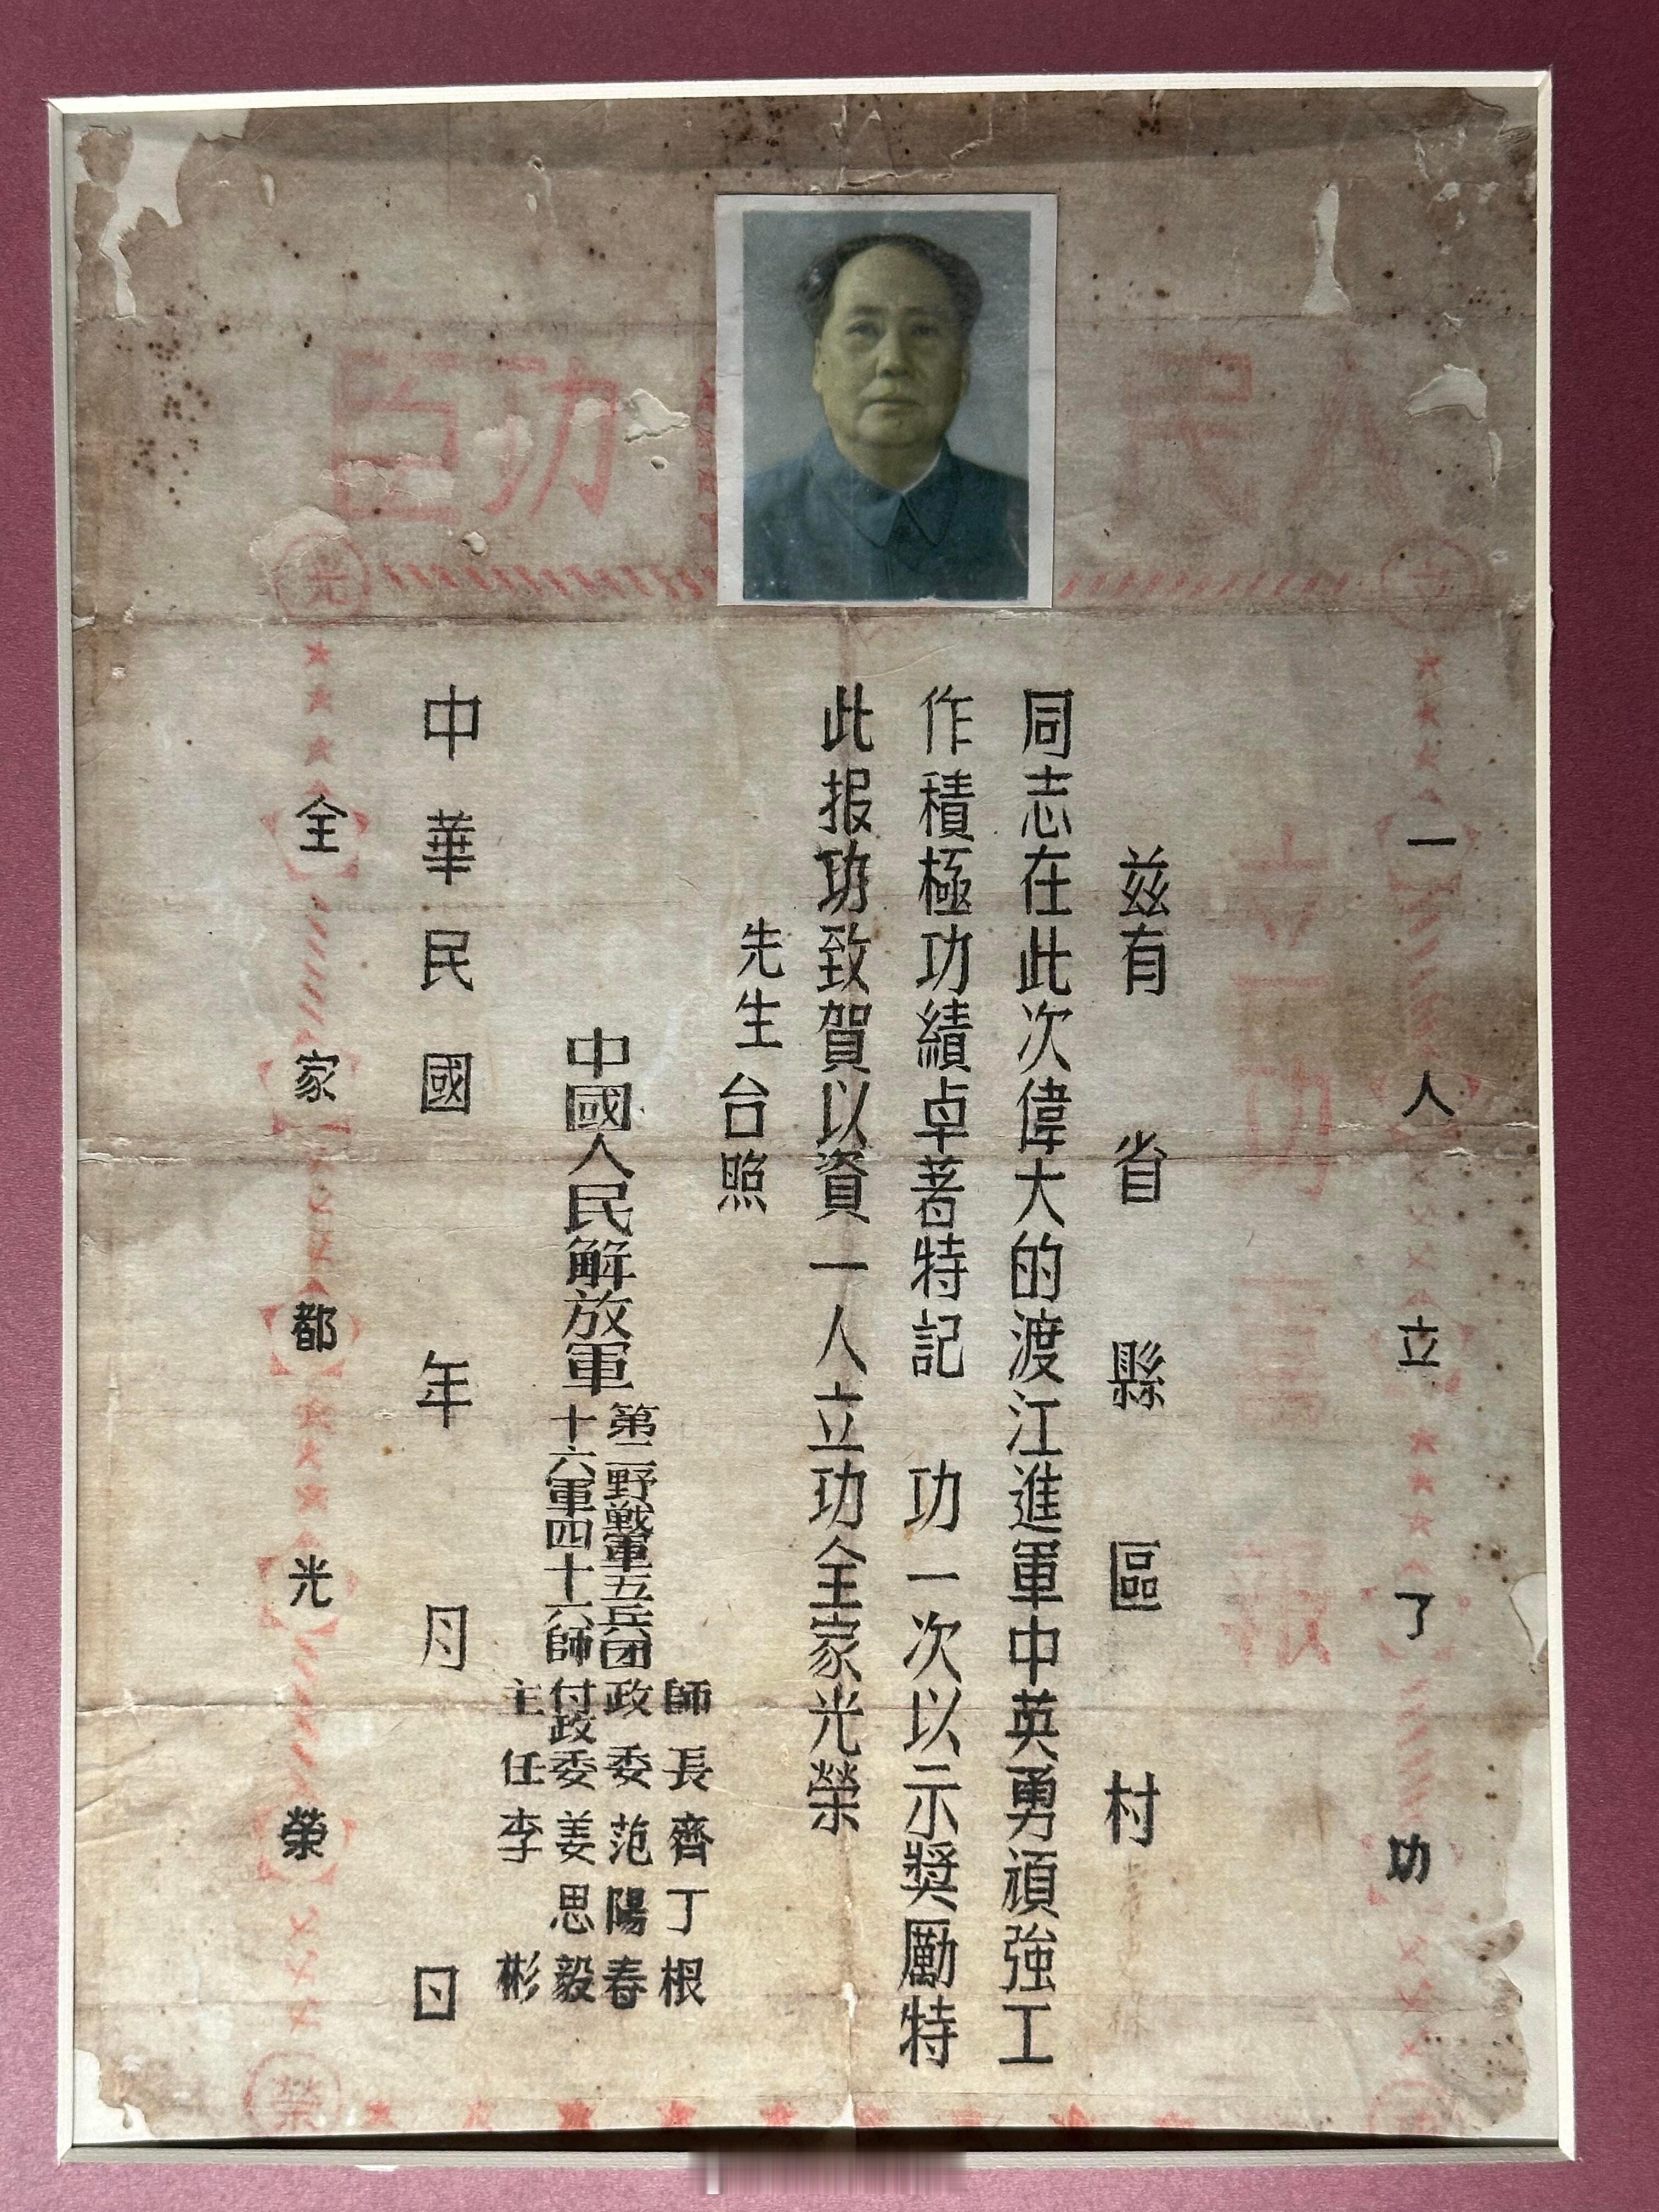 人民功臣
光
一人立了功
立功喜報
茲有 省 縣 區 村
同志在此次偉大的渡江進軍中英勇頑強工
作積極功績卓著特記 功一次以示獎勵特
此报功致賀以資一人立功全家光榮
先生台照
中國人民解放軍
第二野戰軍五兵团
十六軍四十六師
師長齊丁根
政委范陽春
付政委姜思毅
主任李彬
中華民國 年 月 日
全家都光榮
榮